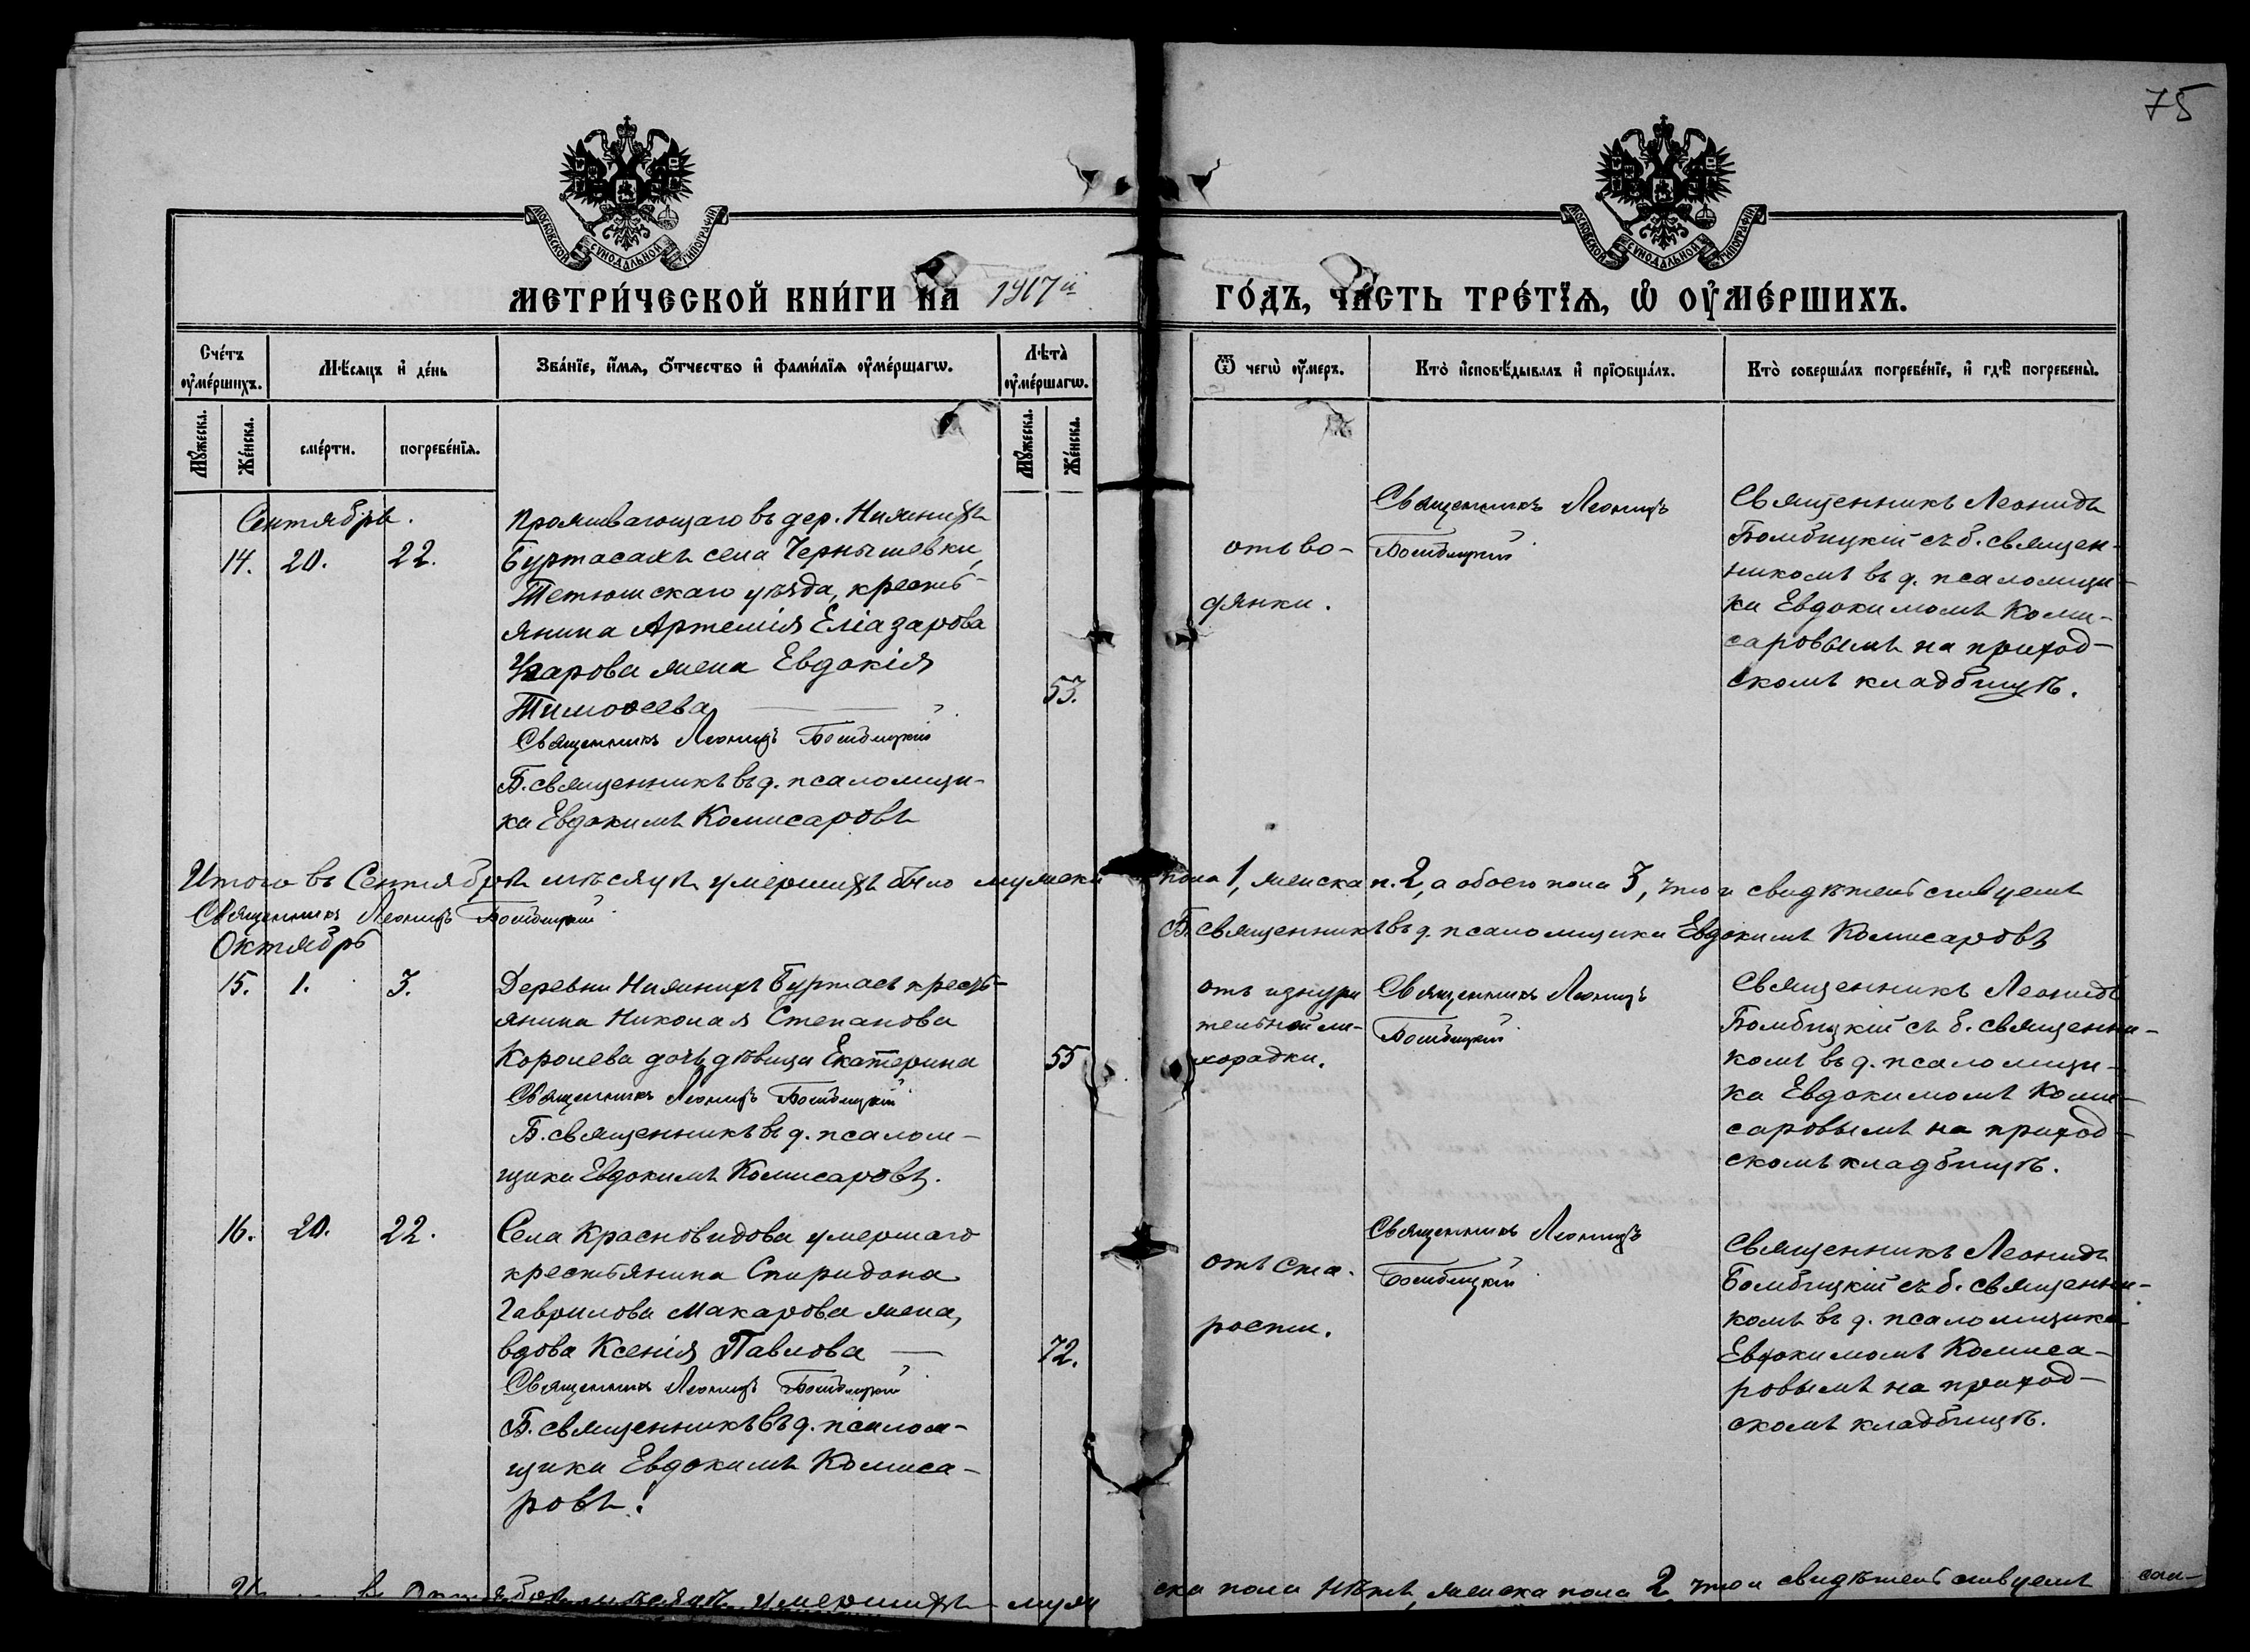 75
МОСКОВСКОЙ СѴНОДАЛЬНОЙ ТИПОГРАФІИ
МОСКОВСКОЙ СѴНОДАЛЬНОЙ ТИПОГРАФІИ
МЕТРИ́ЧЕСКОЙ КНИ́ГИ НА 1917й ГО́ДЪ, ЧА́СТЬ ТРЕ́ТЇѦ, Ѡ҆ ОУ҆МЕ́РШИХЪ.
Сче́тъ оу҆ме́ршихъ.
Мѣ́сяцъ и҆ де́нь
Зва́нїе, и҆́мѧ, ѻ҆́тчество и҆ фами́лїѧ оу҆ме́ршагѡ.
Лѣ́та оу҆ме́ршагѡ.
Ѿ чегѡ̀ оу҆́меръ.
Кто̀ и҆сповѣ́дывалъ и҆ прїѻбща́лъ.
Кто̀ соверша́лъ погребе́нїе, и҆ гдѣ̀ погребены̀.
Мꙋ́жеска.
Же́нска.
сме́рти.
погребе́нїѧ.
Мꙋ́жеска.
Же́нска.
Сентябрь.
14. 20. 22.
Проживающаго въ дер. Нижнихъ
Буртасахъ села Чернышевки,
Тетюшскаго уѣзда, кресть-
янина Артемія Еліазарова
жена Евдокія
Тимоѳеева
53.
Священникъ Леонидъ Бомбицкій
Б. священникъ въ д. псаломщи-
ка Евдокимъ Комисаровъ
отъ во-
дянки.
Священникъ Леонидъ
Бомбицкій
Священникъ Леонидъ
Бомбицкій съ б. священ-
никомъ въ д. псаломщи-
ка Евдокимомъ Коми-
саровымъ на приход-
скомъ кладбищѣ.
Итого въ Сентябрѣ мѣсяцѣ умершихъ было мужска пола 1, женска п. 2, а обоего пола 3, что и свидѣтельствуемъ
Священникъ Леонидъ Бомбицкій
Б. священникъ въ д. псаломщика Евдокимъ Комисаровъ
Октябрь
15. 1. 3.
Деревни Нижнихъ Буртасъ кресть-
янина Николая Степанова
Королева дочь, дѣвица Екатерина
55
Священникъ Леонидъ Бомбицкій
Б. священникъ въ д. псалом-
щика Евдокимъ Комисаровъ.
отъ изнури
тельной ли-
хорадки.
Священникъ Леонидъ
Бомбицкій
Священникъ Леонидъ
Бомбицкій съ б. священни-
комъ въ д. псаломщи-
ка Евдокимомъ Коми-
саровымъ на приход-
скомъ кладбищѣ.
16. 20. 22.
Села Красновидова умершаго
крестьянина Спиридона
Гаврилова Макарова жена,
вдова Ксенія Павлова
72.
Священникъ Леонидъ Бомбицкій
Б. священникъ въ д. псалом-
щика Евдокимъ Комиса-
ровъ.
отъ ста-
рости.
Священникъ Леонидъ
Бомбицкій
Священникъ Леонидъ
Бомбицкій съ б. священни-
комъ въ д. псаломщика
Евдокимомъ Комиса-
ровымъ на приход-
скомъ кладбищѣ.
въ Октябрѣ мѣсяцѣ умершихъ муж ска пола нѣтъ, женска пола 2 что и свидѣтельствуемъ